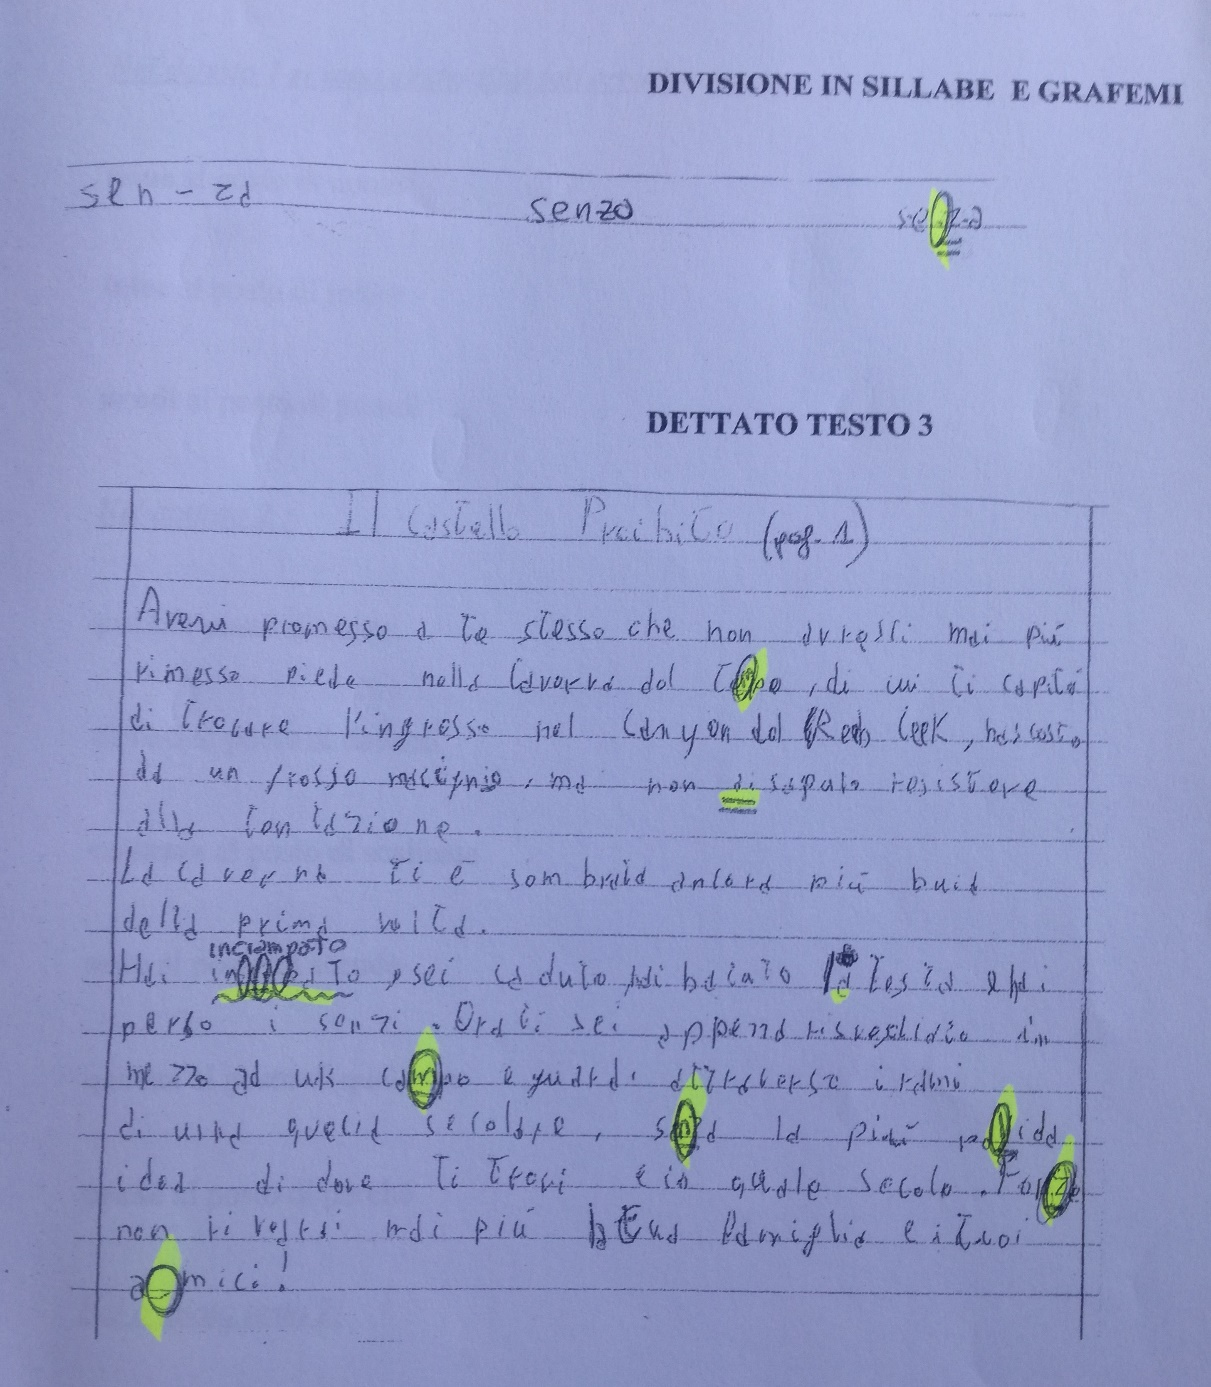 DIVISIONE IN SILLABE E GRAFEMI
sen - za senzo
DETTATO TESTO 3
Il Castello Proibito (pag. 1)
Avevi promesso a te stesso che non avresti mai più
rimesso piede nella caverna del, di cui ti capitò
di trovare l'ingresso nel Canyon del Creek, nascosto
da un grosso macigno, ma non di saputo resistere
alla tentazione.
La caverna ti è sembrata ancora più buia
della prima volta.
inciampato
Hai, sei caduto, hai baciato la testa e hai
perso i sensi. Ora ti sei appena risvegliato in
mezzo ad un campo e guardi attraverso i rami
di una quercia secolare, la più
idea di dove ti trovi e in quale secolo.
non rivedrai mai più la tua famiglia e i tuoi
amici!